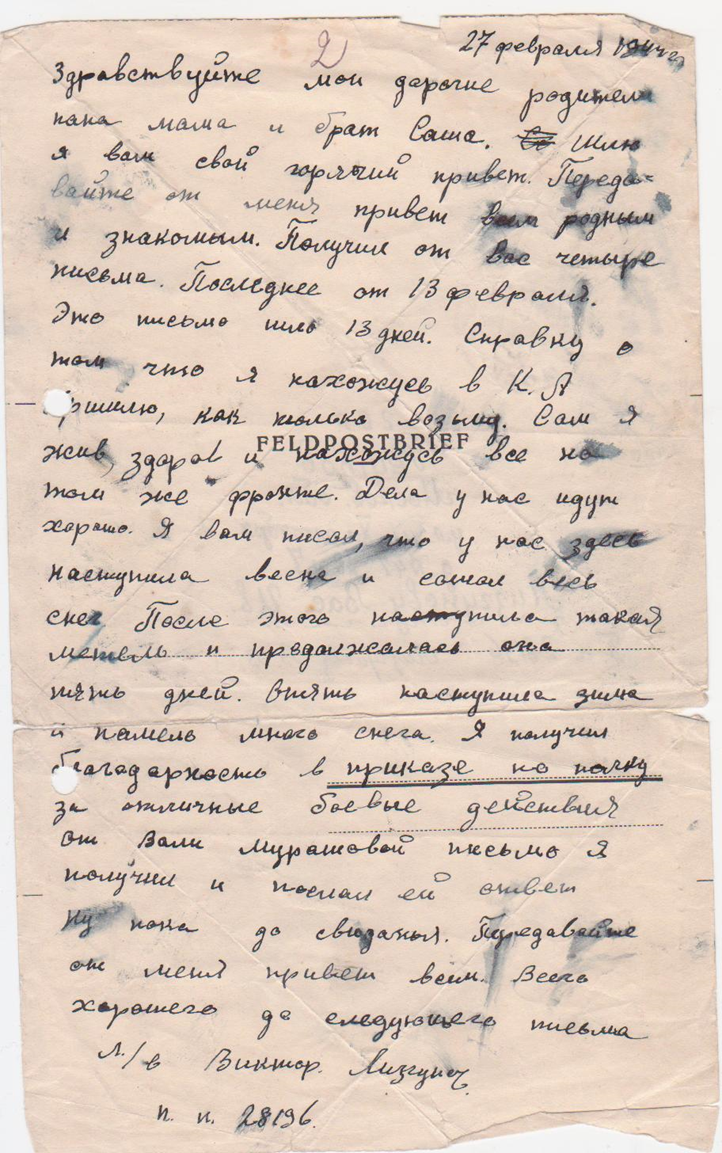 2
27 февраля 1944 г
Здравствуйте мои дарогие родители
папа мама и брат Саша. Шлю
я вам свой горячий привет. Переда-
вайте от меня привет всем родным
и знакомым. Получил от вас четыре
письма. Последнее от 13 февраля.
Это письмо шло 13 дней. Справку о
том что я нахожусь в К. А
пришлю, как только возьму. Сам я
жив, здоров и нахожусь все на
FELDPOSTBRIEF
том же фронте. Дела у нас идут
хорошо. Я вам писал, что у нас здесь
наступила весна и сошел весь
снег. После этого наступила такая
метель и продолжалась она
пять дней. Опять наступила зима
и намело много снега. Я получил
благодарность в приказе по полку
за отличные боевые действия
от Вали Мурашовой письмо я
получил и послал ей ответ
ну пока до свиданья. Передавайте
от меня привет всем. Всего
хорошего до следующего письма
Виктор.
п. п. 28196.